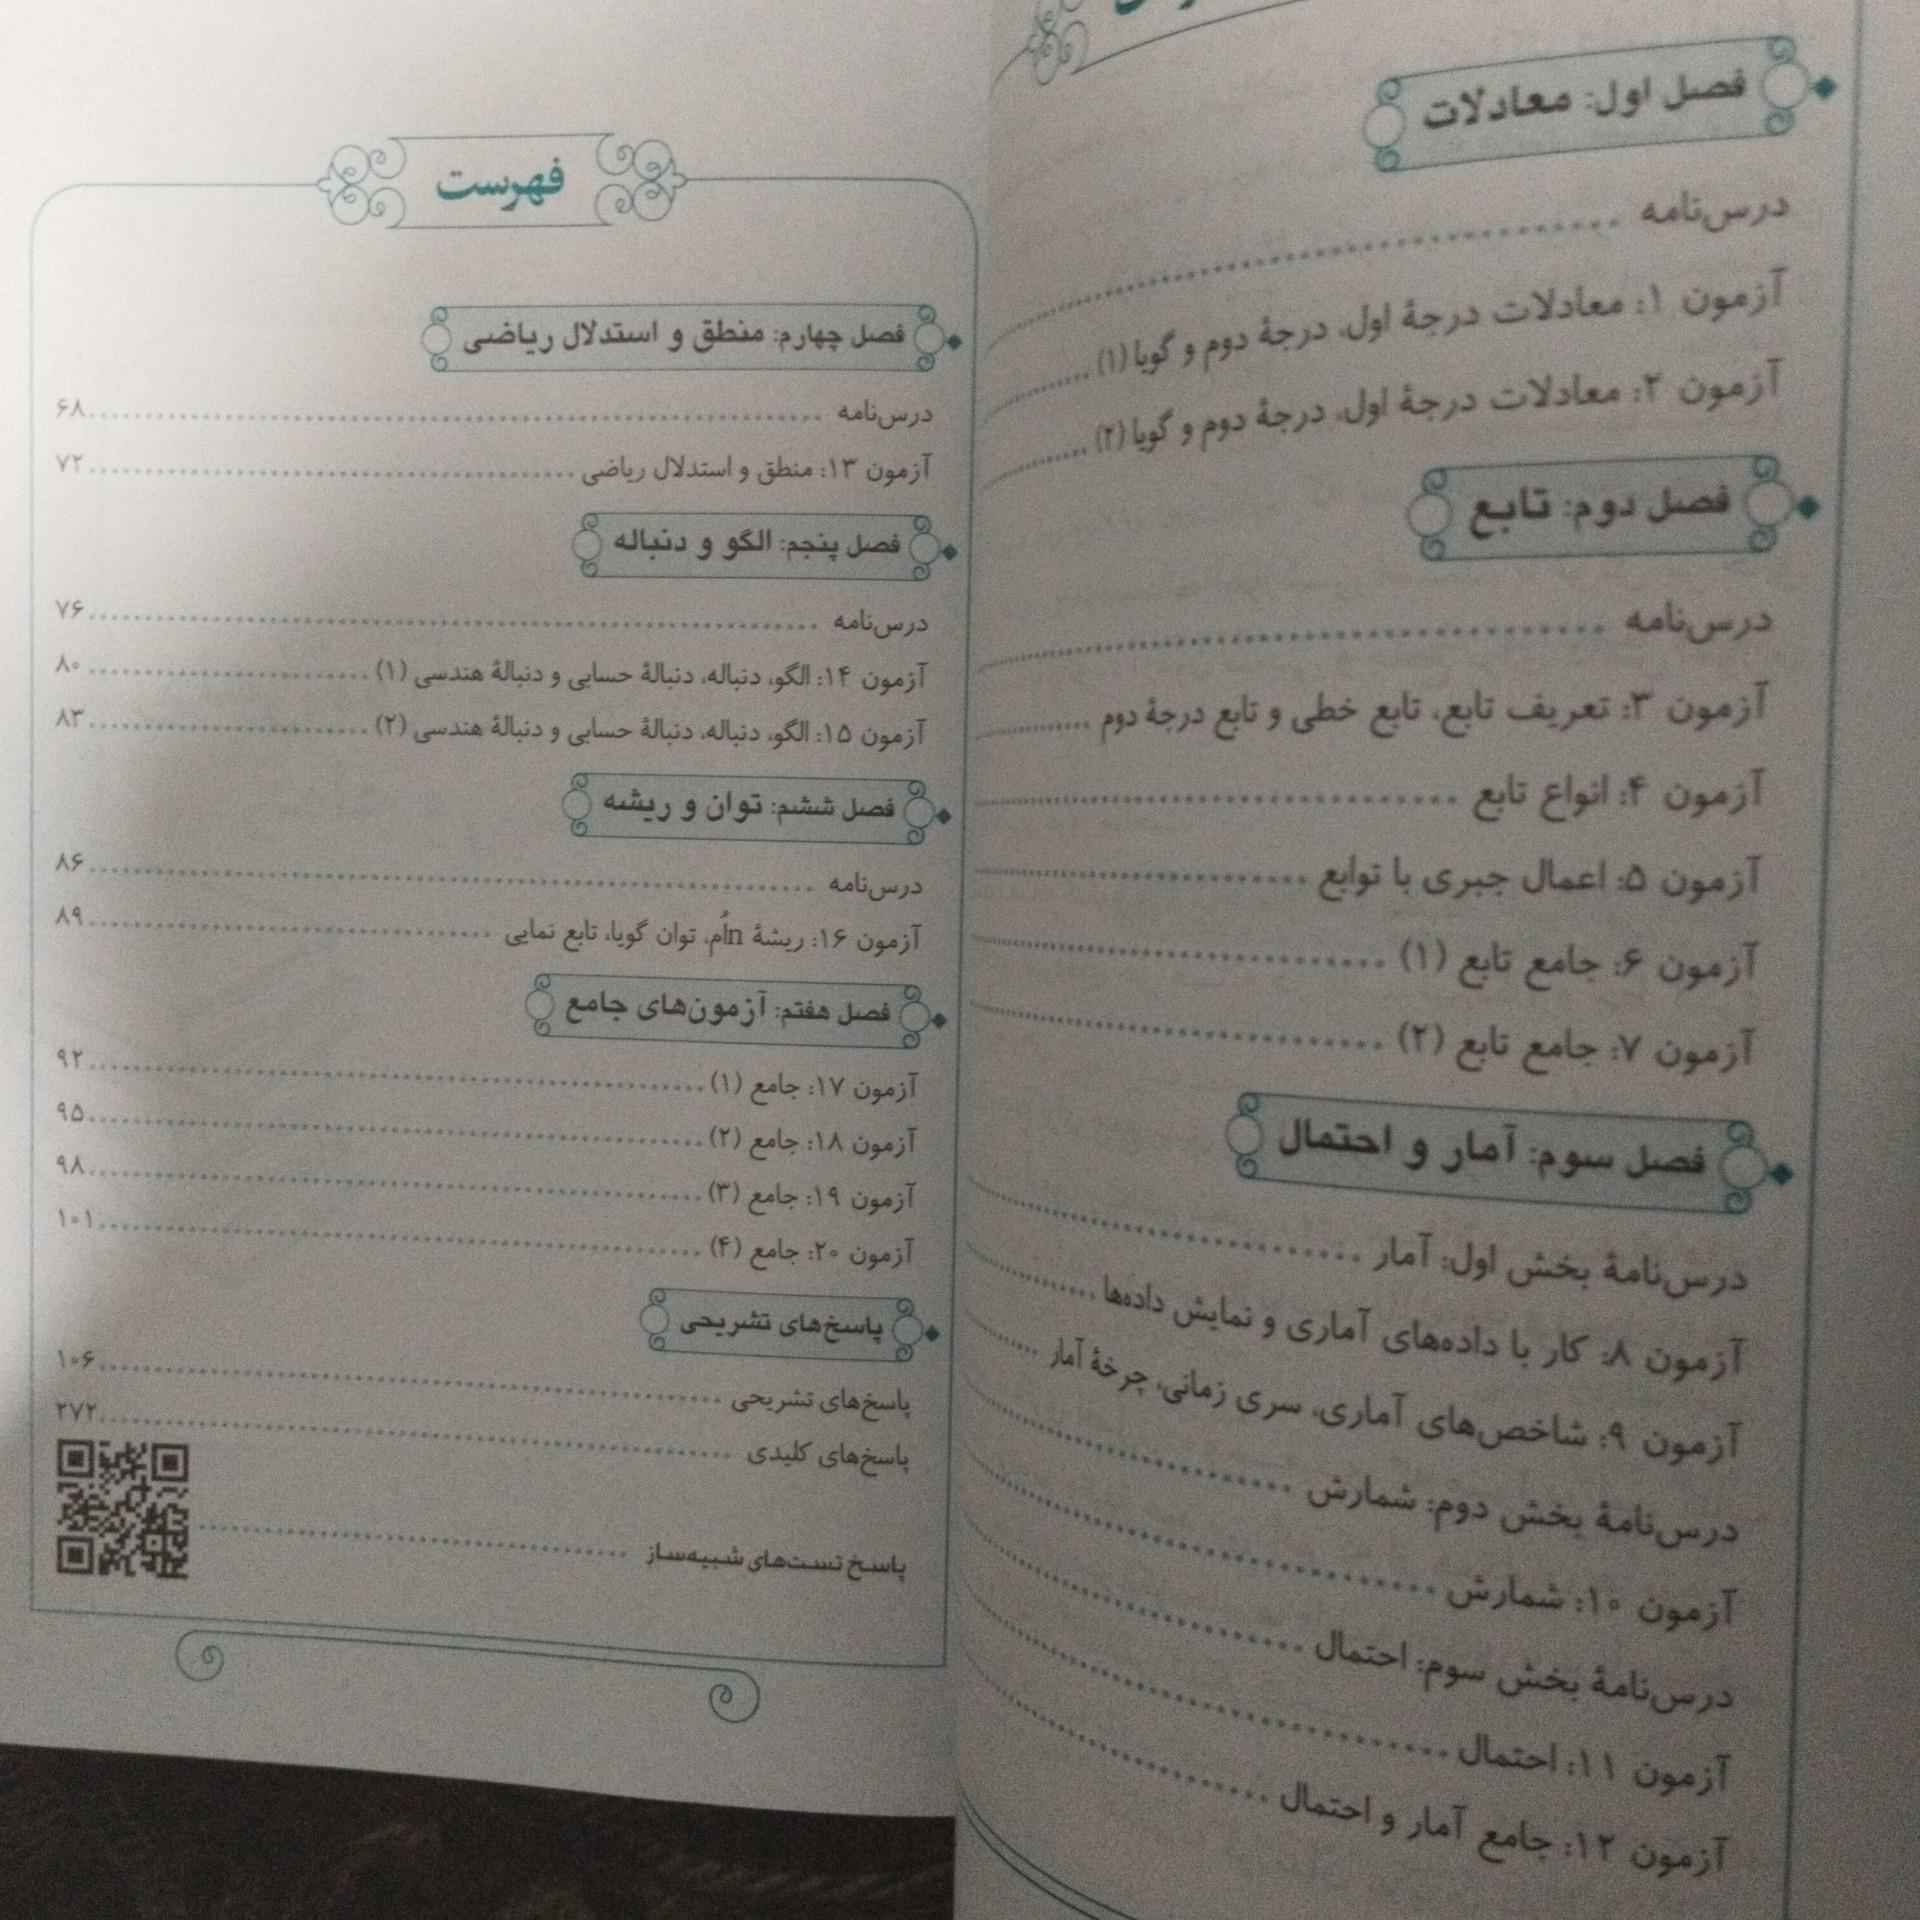 فصل اول: معادلات
درس‌نامه
آزمون ۱: معادلات درجهٔ اول، درجهٔ دوم و گویا (۱)
آزمون ۲: معادلات درجهٔ اول، درجهٔ دوم و گویا (۲)
فصل دوم: تابع
درس‌نامه
آزمون ۳: تعریف تابع، تابع خطی و تابع درجهٔ دوم
آزمون ۴: انواع تابع
آزمون ۵: اعمال جبری با توابع
آزمون ۶: جامع تابع (۱)
آزمون ۷: جامع تابع (۲)
فصل سوم: آمار و احتمال
درس‌نامهٔ بخش اول: آمار
آزمون ۸: کار با داده‌های آماری و نمایش داده‌ها
آزمون ۹: شاخص‌های آماری، سری زمانی، چرخهٔ آمار
درس‌نامهٔ بخش دوم: شمارش
آزمون ۱۰: شمارش
درس‌نامهٔ بخش سوم: احتمال
آزمون ۱۱: احتمال
آزمون ۱۲: جامع آمار و احتمال
فهرست
فصل چهارم: منطق و استدلال ریاضی
درس‌نامه ۶۸
آزمون ۱۳: منطق و استدلال ریاضی ۷۲
فصل پنجم: الگو و دنباله
درس‌نامه ۷۶
آزمون ۱۴: الگو، دنباله، دنبالهٔ حسابی و دنبالهٔ هندسی (۱) ۸۰
آزمون ۱۵: الگو، دنباله، دنبالهٔ حسابی و دنبالهٔ هندسی (۲) ۸۳
فصل ششم: توان و ریشه
درس‌نامه ۸۶
آزمون ۱۶: ریشهٔ nاُم، توان گویا، تابع نمایی ۸۹
فصل هفتم: آزمون‌های جامع
آزمون ۱۷: جامع (۱) ۹۲
آزمون ۱۸: جامع (۲) ۹۵
آزمون ۱۹: جامع (۳) ۹۸
آزمون ۲۰: جامع (۴) ۱۰۱
پاسخ‌های تشریحی
پاسخ‌های تشریحی ۱۰۶
پاسخ‌های کلیدی ۲۷۲
پاسخ تست‌های شبیه‌ساز